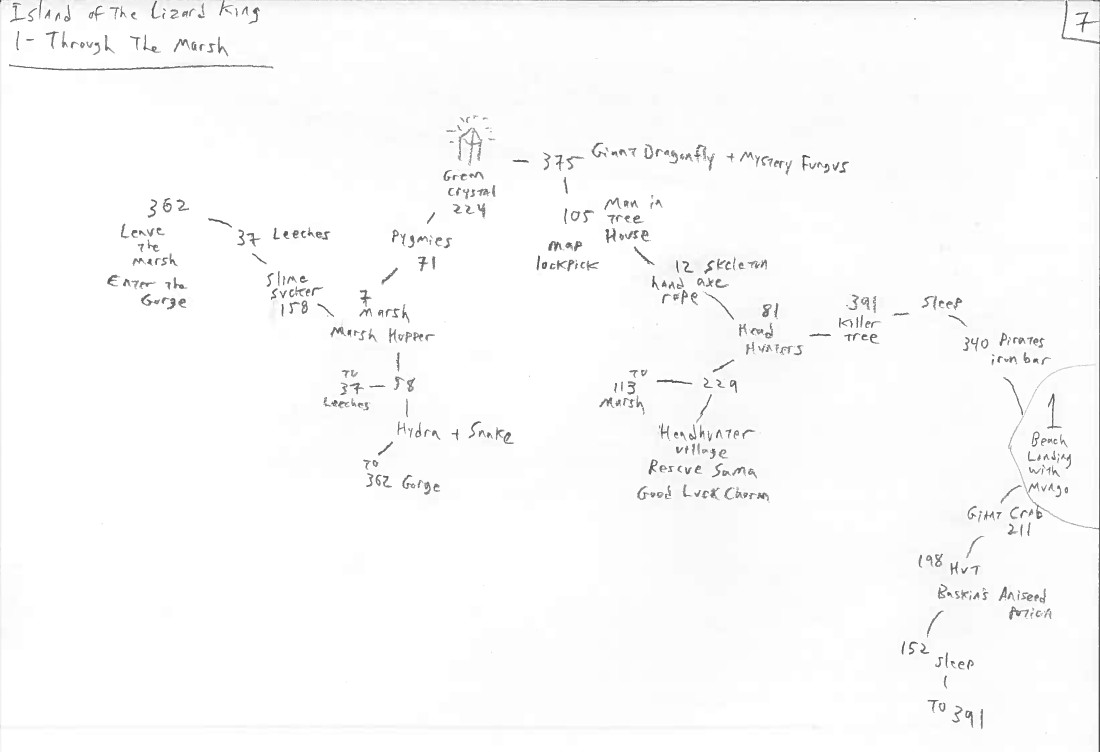 Island of The Lizard King
1- Through The Marsh
7
Green
Crystal
224
375 Giant Dragonfly + Mystery Fungus
105 Man in
Tree
House
map
lockpick
362
Leave
the
Marsh
Enter the
Gorge
37 Leeches
Slime
Sucker
158
Pygmies
71
7
Marsh
Marsh Hopper
12 Skeleton
hand axe
rope
81
Head
Hunters
391
Killer
Tree
Sleep
340 Pirates
iron bar
1
Beach
Landing
with
Mungo
TO
37
Leeches
98
Hydra + Snake
TO
362 Gorge
TO
113
Marsh
229
Headhunter
village
Rescue Sama
Good Luck Charm
Giant Crab
211
198 HUT
Baskin's Aniseed
potion
152 Sleep
TO 391